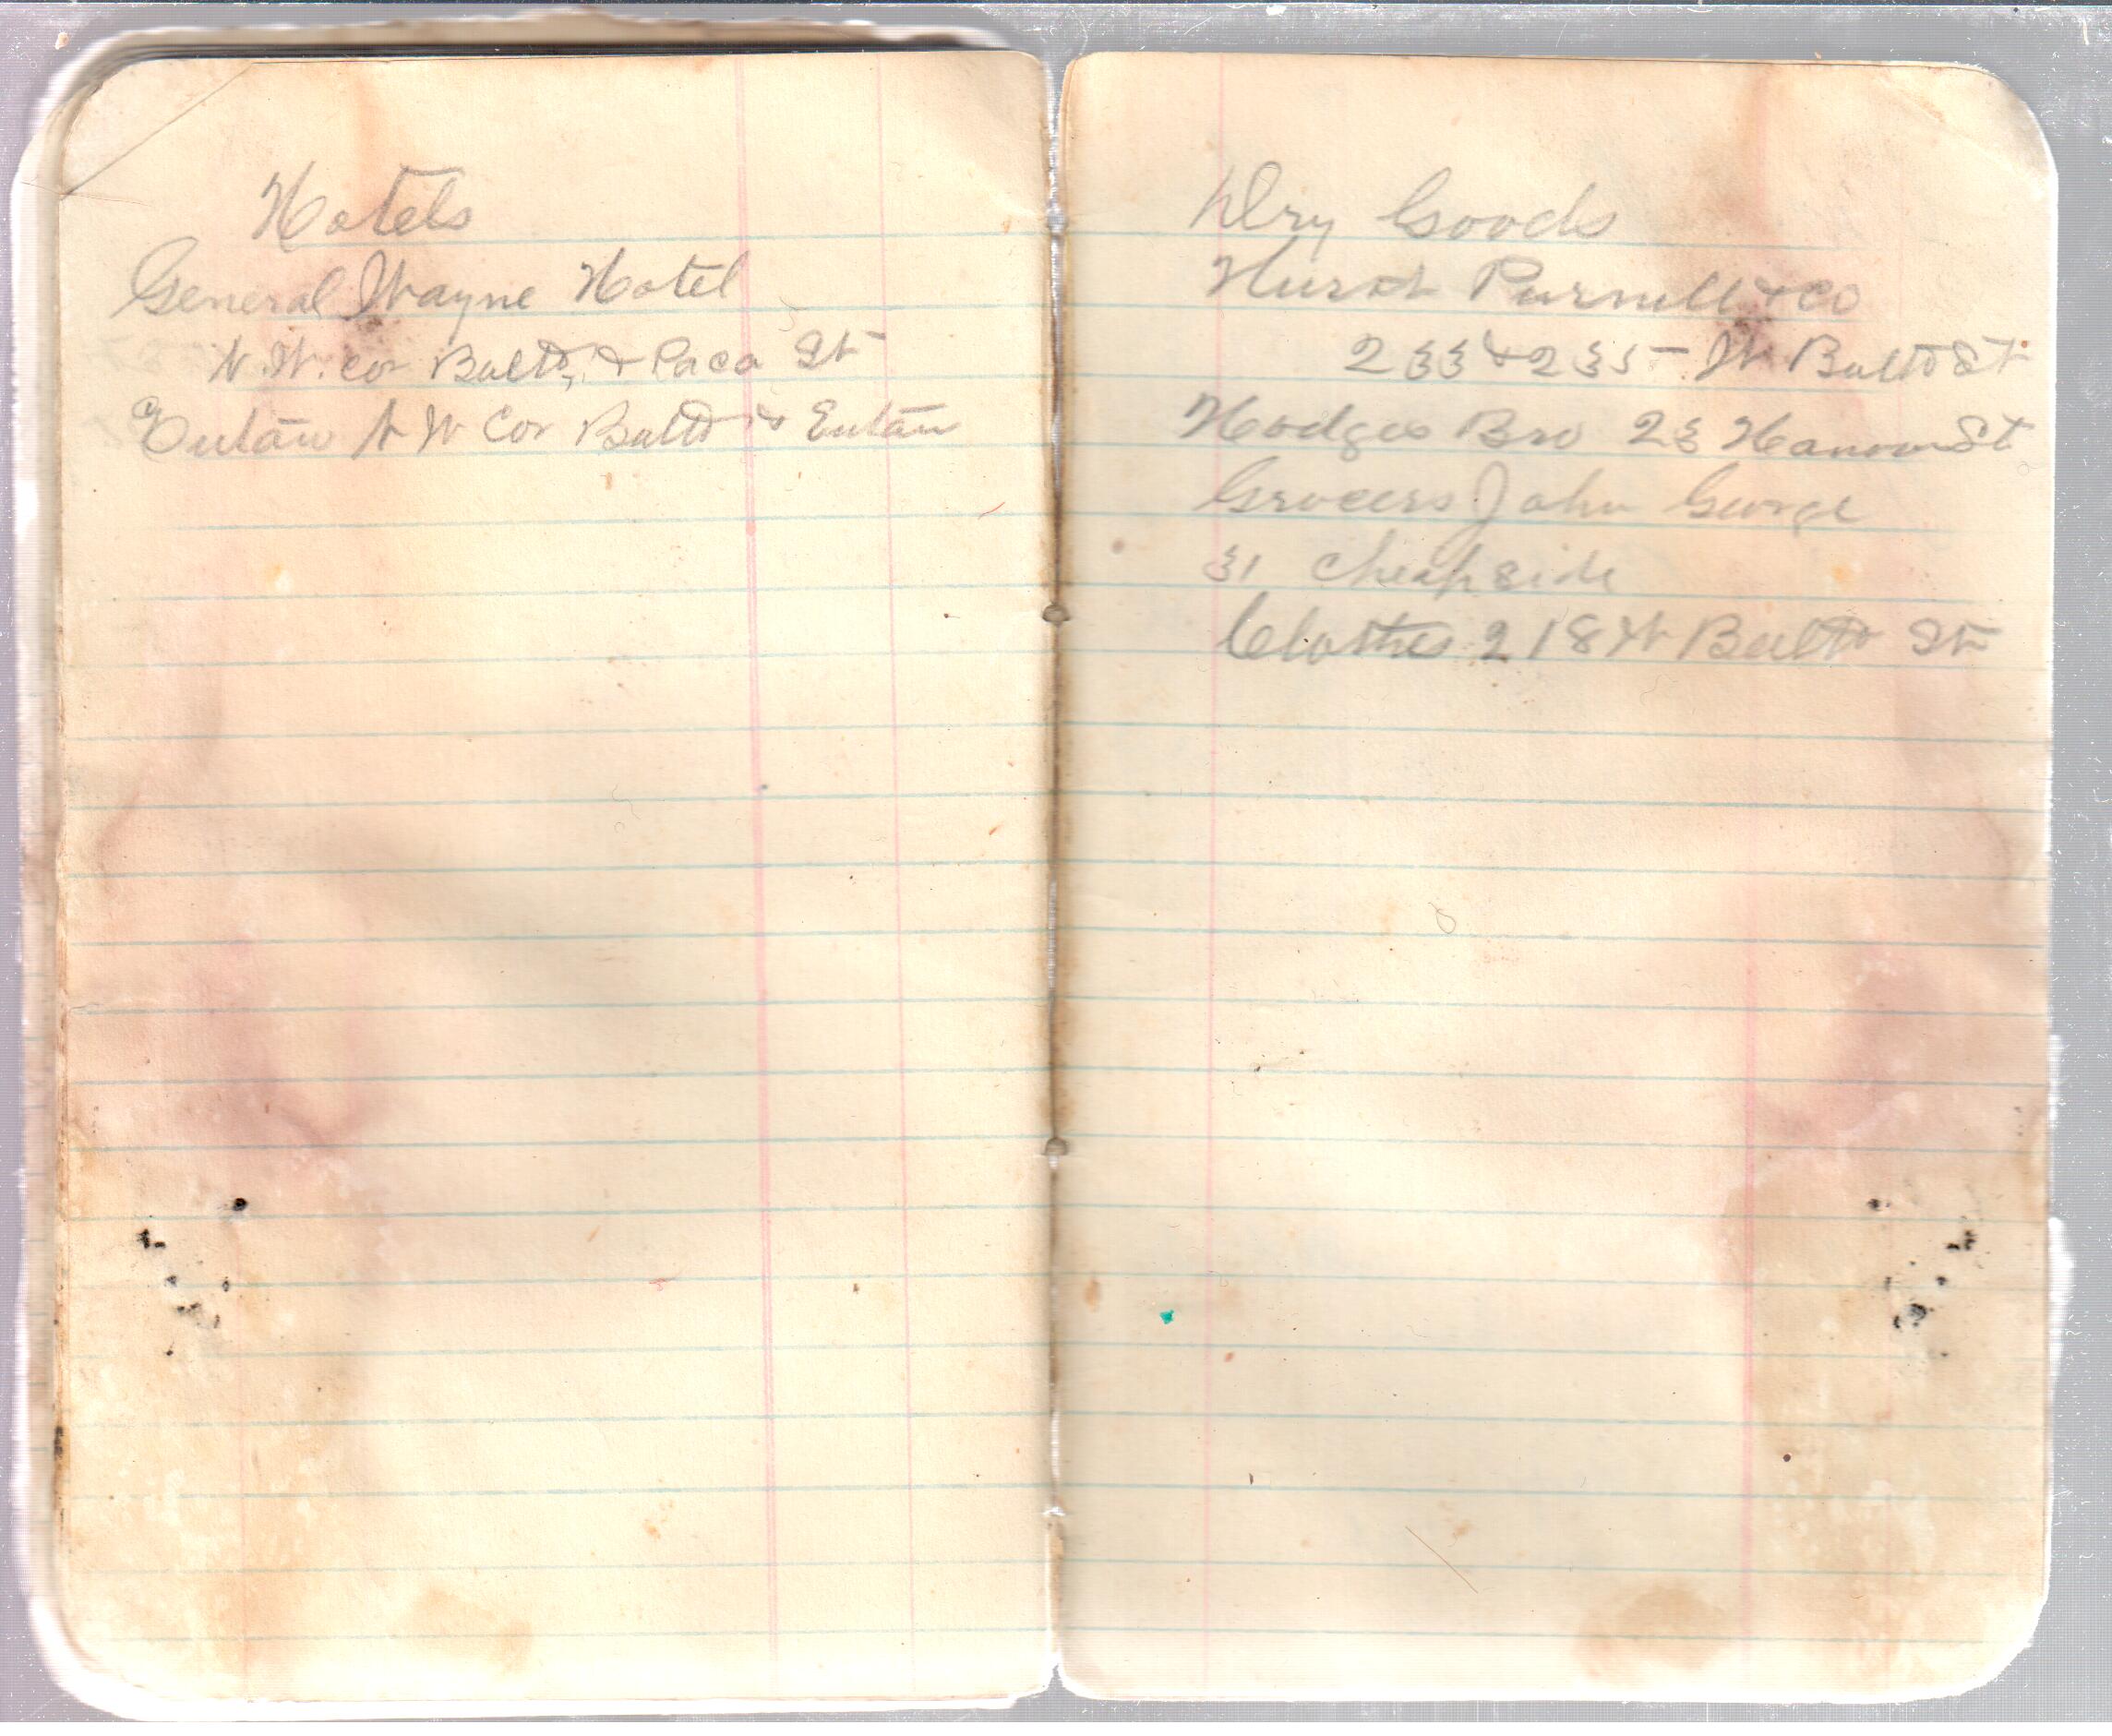 Hotels
General Wayne Hotel
N.W. cor Balto, & Paca St
Eutaw N W Cor Balto & Eutaw
Dry Goods
Hurst Purnell & Co
233 & 235 - W Balto St
Hodges Bro 23 Hanover St
Grocers John George
31 Cheapside
Clothes 218 W Balto St